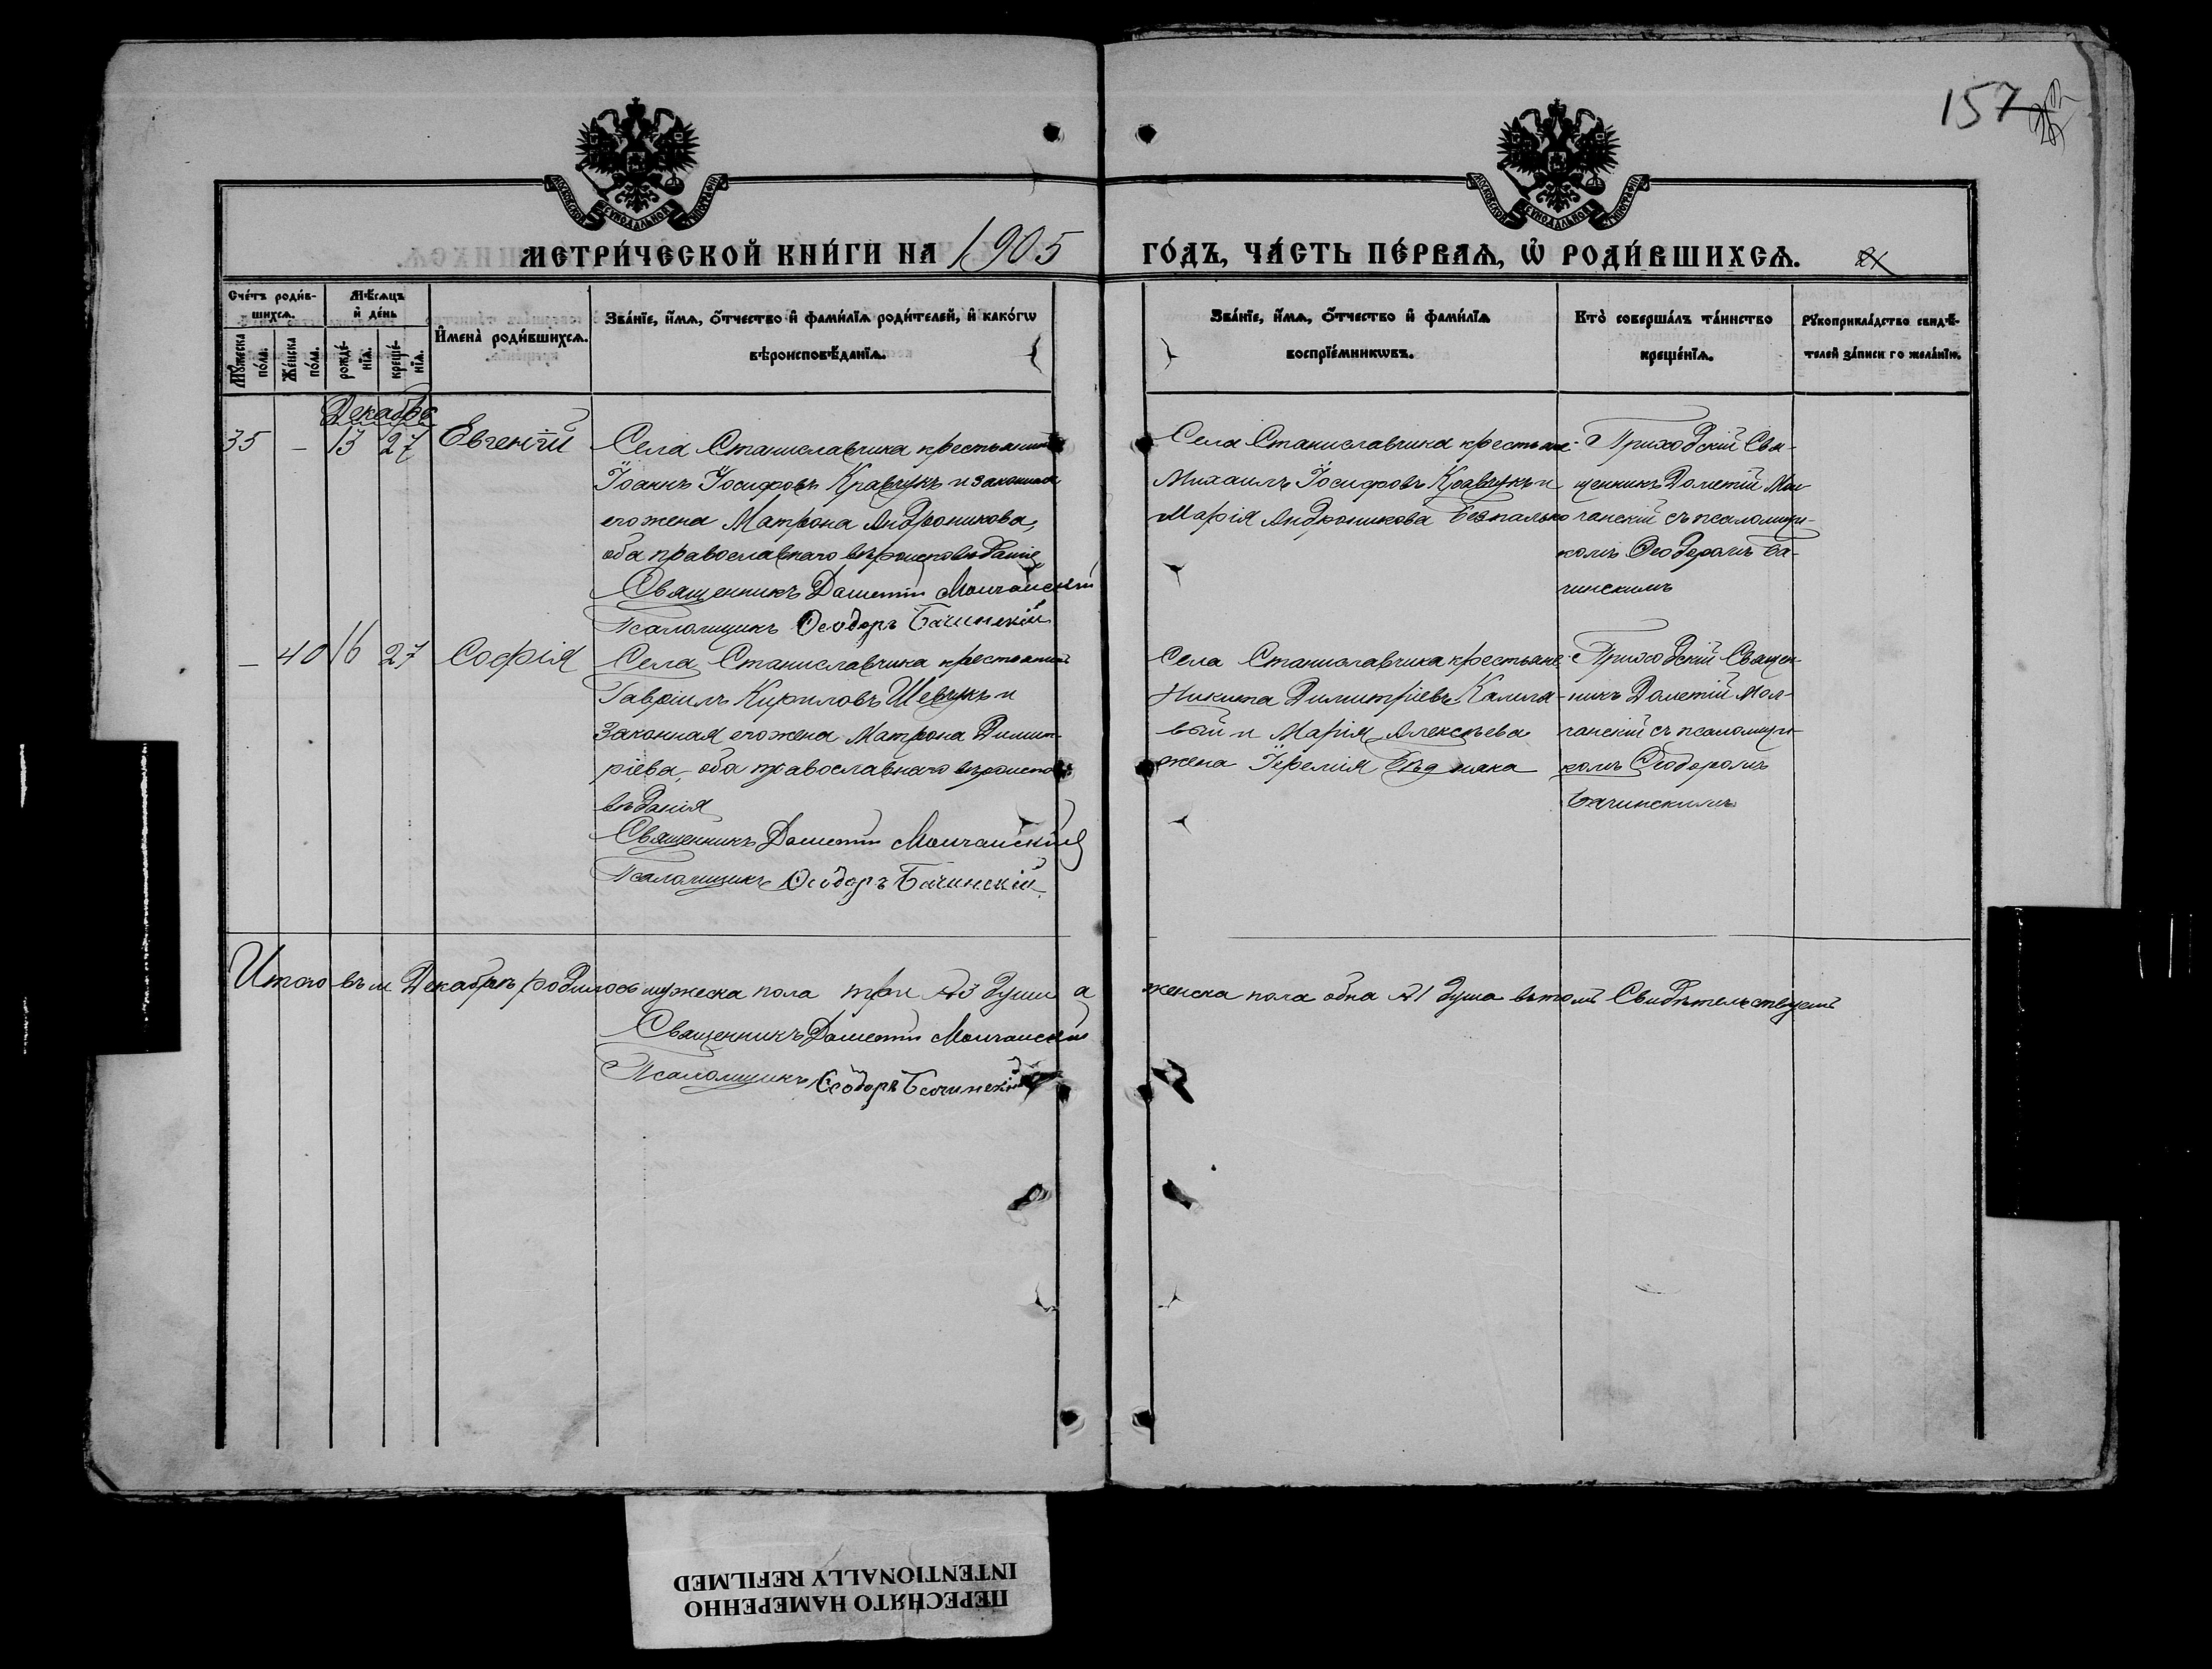 157
МОСКОВСКОЙ СѴНОДАЛЬНОЙ ТИПОГРАФІИ
МОСКОВСКОЙ СѴНОДАЛЬНОЙ ТИПОГРАФІИ
МЕТРИ́ЧЕСКОЙ КНИ́ГИ НА 1905 ГО́ДЪ, ЧА́СТЬ ПЕ́РВАѦ, Ѽ РОДИ́ВШИХСѦ.
Сче́тъ роди́в-
шихсѧ.
Мѣ́сѧцъ
и҆ де́нь
Мꙋ́жеска по́ла.
Же́нска по́ла.
рожде́-нїѧ.
креще́-нїѧ.
И҆мена̀ роди́вшихсѧ.
Зва́нїе, и҆́мѧ, ѻ҆́тчество и҆ фами́лїѧ роди́телей, и҆ како́гѡ
вѣроисповѣ́данїѧ.
Зва́нїе, и҆́мѧ, ѻ҆́тчество и҆ фами́лїѧ
воспрїе́мникѡвъ.
Кто̀ соверша́лъ та́инство
креще́нїѧ.
Рꙋкоприкла́дство свидѣ́-
телей за́писи по жела́нїю.
Декабрь
35 – 13 27 Евгеній
Села Станиславчика крестьянинъ
Іоаннъ Іосифовъ Кравчукъ и законная
его жена Матрона Андроникова,
оба православнаго вѣроисповѣданія
Священникъ Дометій Молчанскій
Псаломщикъ Ѳеодоръ Бачинскій
Села Станиславчика крестьяне:
Михаилъ Іосифовъ Кравчукъ и
Марія Андроникова Безпалько
Приходскій Свя-
щенникъ Дометій Мол-
чанскій съ псаломщи-
комъ Ѳеодоромъ Ба-
чинскимъ
– 40 16 27 Софія
Села Станиславчика крестьянинъ
Гавріилъ Кириловъ Шевчукъ и
законная его жена Матрона Димит-
ріева, оба православнаго вѣроиспо-
вѣданія
Священникъ Дометій Молчанскій
Псаломщикъ Ѳеодоръ Бачинскій
Села Станиславчика крестьяне:
Никита Димитріевъ
и Марія Алексѣева
жена Іереміи Бѣдняка
Приходскій Священ-
никъ Дометій Мол-
чанскій съ псаломщи-
комъ Ѳеодоромъ
Бачинскимъ
Итого въ м. Декабрѣ родилось мужеска пола три №3 души а женска пола одна №1 душа въ томъ Свидѣтельствуемъ
Священникъ Дометій Молчанскій
Псаломщикъ Ѳеодоръ Бачинскій
ПЕРЕСНЯТО НАМЕРЕННО
INTENTIONALLY REFILMED